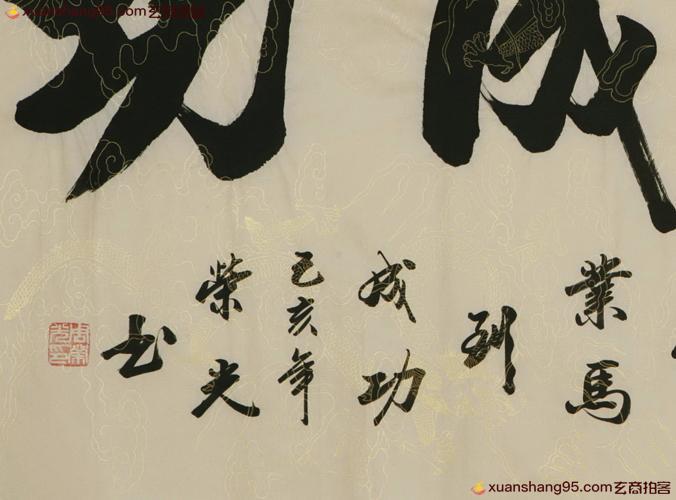 xuanshang95.com玄商拍客
業馬
到
成功
己亥年
榮光
书
xuanshang95.com玄商拍客